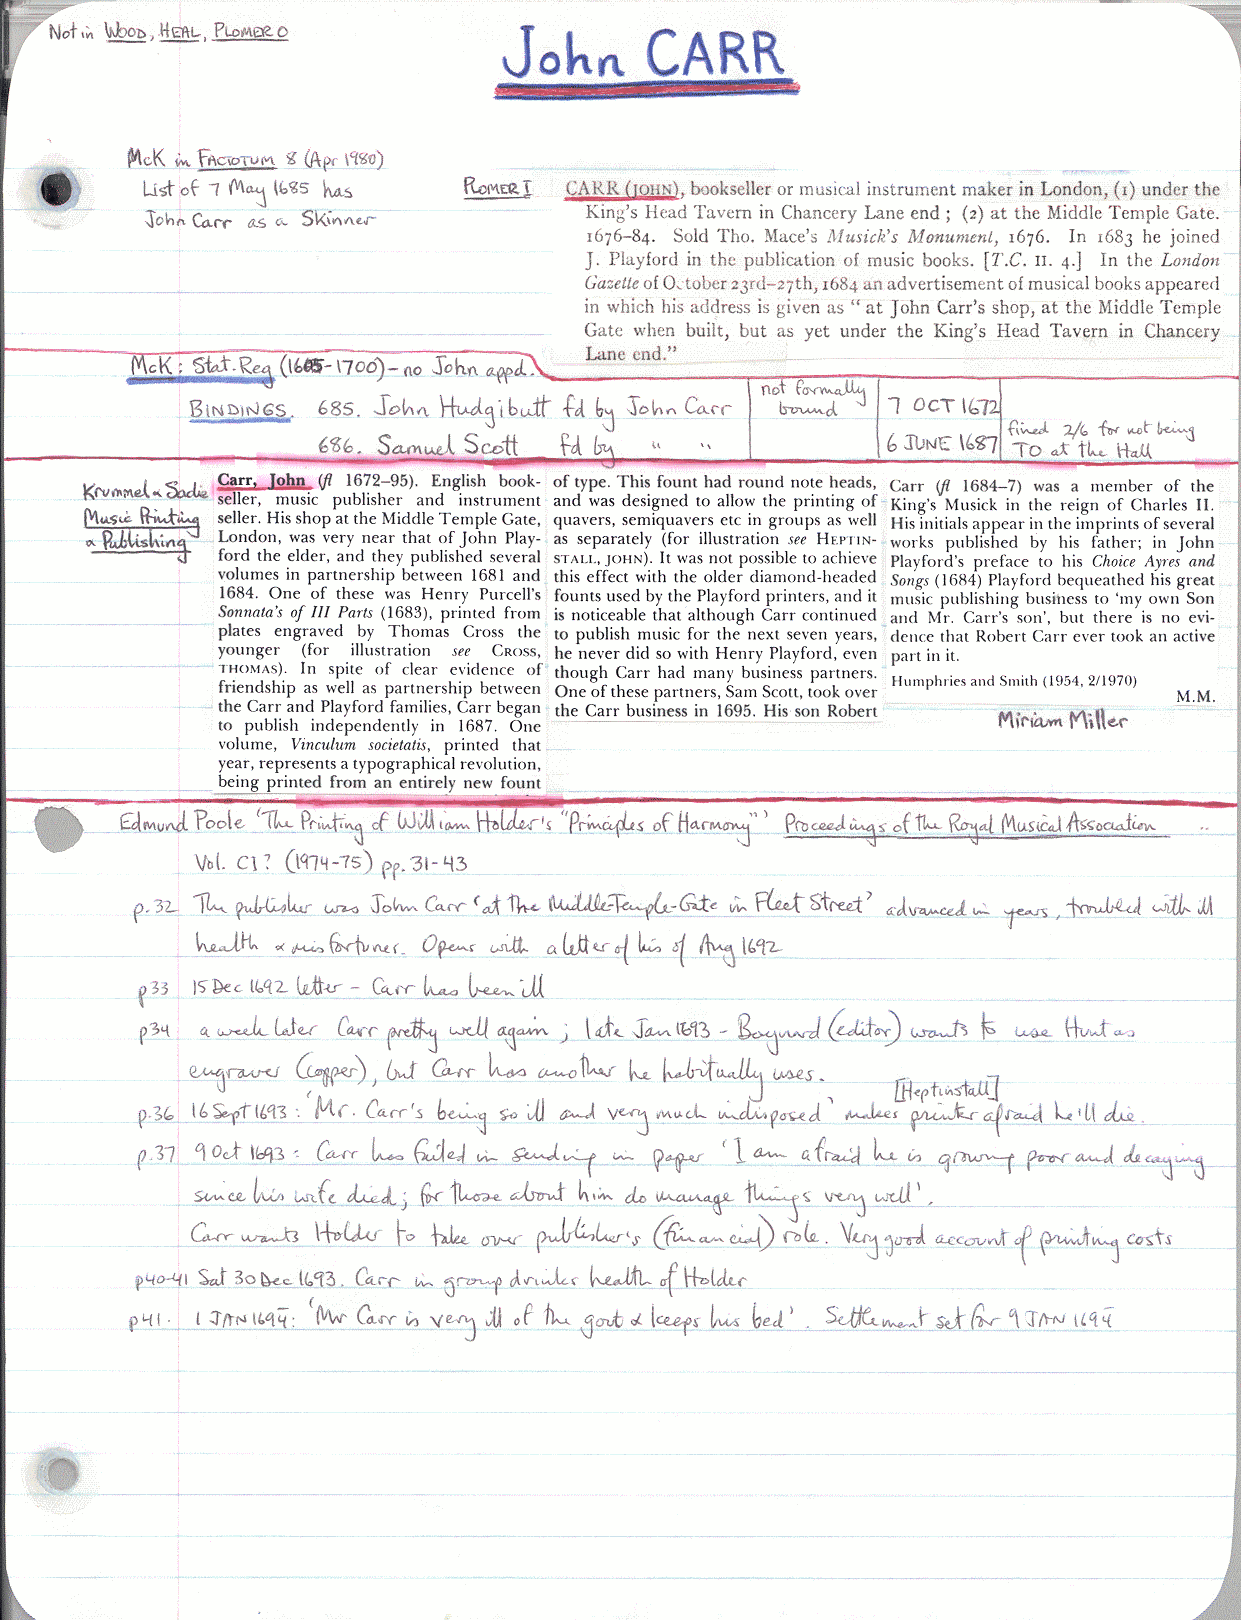 Not in WOOD, HEAL, PLOMER O
John CARR
McK in FACTOTUM 8 (Apr 1980)
List of 7 May 1685 has
John Carr as a Skinner
PLOMER I
CARR (JOHN), bookseller or musical instrument maker in London, (1) under the
King's Head Tavern in Chancery Lane end ; (2) at the Middle Temple Gate.
1676-84. Sold Tho. Mace's Musick's Monument, 1676. In 1683 he joined
J. Playford in the publication of music books. [T.C. II. 4.] In the London
Gazette of October 23rd-27th, 1684 an advertisement of musical books appeared
in which his address is given as "at John Carr's shop, at the Middle Temple
Gate when built, but as yet under the King's Head Tavern in Chancery
Lane end."
McK: Stat. Reg (1605-1700) - no John appd.
BINDINGS. 685. John Hudgibutt fd by John Carr not formally bound 7 OCT 1672
686. Samuel Scott fd by " " 6 JUNE 1687 fined 2/6 for not being TO at the Hall
Krummel & Sadie
Music Printing
& Publishing
Carr, John (fl 1672–95). English book-
seller, music publisher and instrument
seller. His shop at the Middle Temple Gate,
London, was very near that of John Play-
ford the elder, and they published several
volumes in partnership between 1681 and
1684. One of these was Henry Purcell's
Sonnata's of III Parts (1683), printed from
plates engraved by Thomas Cross the
younger (for illustration see CROSS,
THOMAS). In spite of clear evidence of
friendship as well as partnership between
the Carr and Playford families, Carr began
to publish independently in 1687. One
volume, Vinculum societatis, printed that
year, represents a typographical revolution,
being printed from an entirely new fount
of type. This fount had round note heads,
and was designed to allow the printing of
quavers, semiquavers etc in groups as well
as separately (for illustration see HEPTIN-
STALL, JOHN). It was not possible to achieve
this effect with the older diamond-headed
founts used by the Playford printers, and it
is noticeable that although Carr continued
to publish music for the next seven years,
he never did so with Henry Playford, even
though Carr had many business partners.
One of these partners, Sam Scott, took over
the Carr business in 1695. His son Robert
Carr (fl 1684–7) was a member of the
King's Musick in the reign of Charles II.
His initials appear in the imprints of several
works published by his father; in John
Playford's preface to his Choice Ayres and
Songs (1684) Playford bequeathed his great
music publishing business to 'my own Son
and Mr. Carr's son', but there is no evi-
dence that Robert Carr ever took an active
part in it.
Humphries and Smith (1954, 2/1970)
M.M.
Miriam Miller
Edmund Poole 'The Printing of William Holder's "Principles of Harmony"' Proceedings of the Royal Musical Association
Vol. CI? (1974-75) pp. 31-43
p.32 The publisher was John Carr 'at the Middle-Temple-Gate in Fleet Street' advanced in years, troubled with ill
health & misfortunes. Opens with a letter of his of Aug 1692
p33 15 Dec 1692 letter - Carr has been ill
p34 a week later Carr pretty well again ; late Jan 1693 - Baynard (editor) wants to use Hunt as
engraver (copper), but Carr has another he habitually uses.
[Heptinstall]
p.36 16 Sept 1693 : 'Mr. Carr's being so ill and very much indisposed' makes printer afraid he'll die.
p.37 9 Oct 1693 : Carr has failed in sending in paper 'I am afraid he is growing poor and decaying
since his wife died; for those about him do manage things very well'.
Carr wants Holder to take over publisher's (financial) role. Very good account of printing costs
p40-41 Sat 30 Dec 1693. Carr in group drinks health of Holder
p41. 1 JAN 1694: 'Mr Carr is very ill of the gout & keeps his bed'. Settlement set for 9 JAN 1694